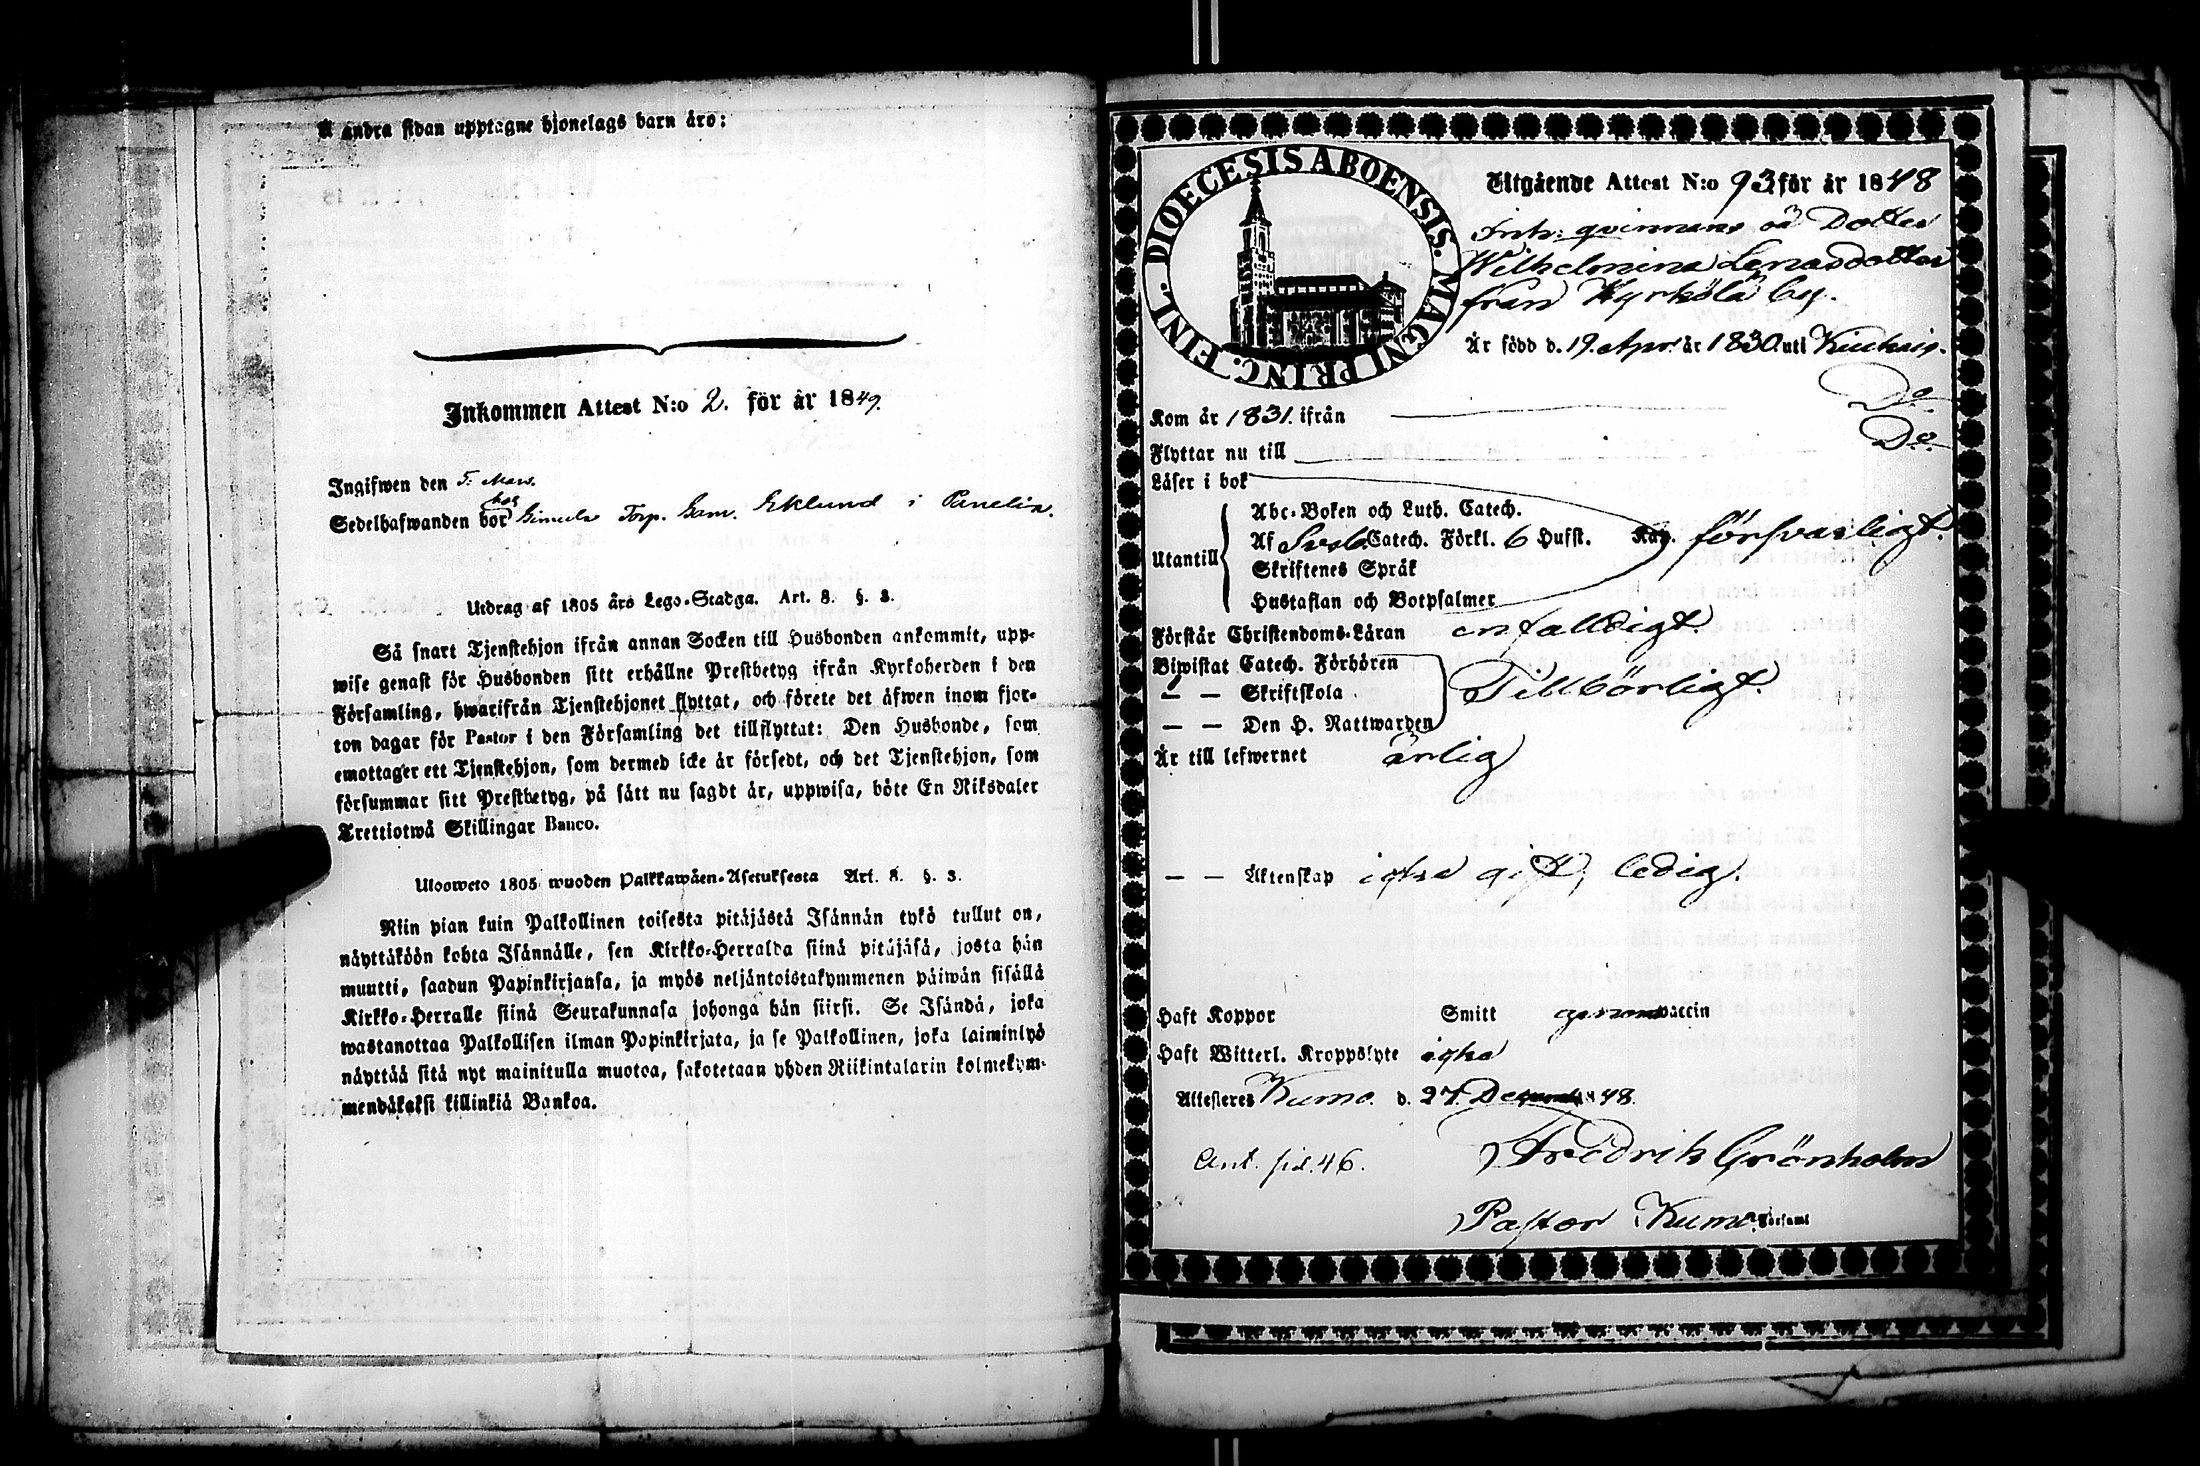 Å andra sidan upptagne hjonelags barn äro:
Inkommen Attest N:o 2. för år 1849.
Ingifwen den 5. Mars.
hos
Sedelhafwanden bor Torp. Gam. Eklund i Panelia.
Utdrag af 1805 års Lego-Stadga. Art. 8. §. 3.
Så snart Tjenstehjon ifrån annan Socken till Husbonden ankommit, upp-
wise genast för Husbonden sitt erhållne Prestbetyg ifrån Kyrkoherden i den
Församling, hwarifrån Tjenstehjonet flyttat, och förete det äfwen inom fjor-
ton dagar för Pastor i den Församling det tillflyttat: Den Husbonde, som
emottager ett Tjenstehjon, som dermed icke är försedt, och det Tjenstehjon, som
försummar sitt Prestbetyg, på sätt nu sagdt är, uppwisa, böte En Riksdaler
Trettiotwå Skillingar Banco.
Ulosweto 1805 wuoden Palkkawäen-Asetuksesta Art. 8. §. 3.
Niin pian kuin Palkollinen toisesta pitäjästä Isännän tykö tullut on,
näyttäköön kohta Isännälle, sen Kirkko-Herralda siinä pitäjäsä, josta hän
muutti, saadun Papinkirjansa, ja myös neljäntoistakymmenen päiwän sisällä
Kirkko-Herralle siinä Seurakunnasa johonga hän siirsi. Se Isändä, joka
wastanottaa Palkollisen ilman Papinkirjata, ja se Palkollinen, joka laiminlyö
näyttää sitä nyt mainitulla muotoa, sakotetaan yhden Riikintalarin kolmekym-
mendäkaksi killinkiä Bankoa.
DIOECESIS ABOENSIS. MAGNI PRINC. FINL.
Utgående Attest N:o 93 för år 1848
Inh: qvinnans oä Dotter
Wilhelmina Lenasdotter
från Kyrkölä by.
Är född d. 19. Apr. år 1830. uti Kiukais.
Kom år 1831. ifrån Do.
Flyttar nu till Do.
Läser i bok
Abc-Boken och Luth. Catech.
Utantill Af Sveb. Catech. Förkl. 6 Hufst. försvarligt.
Skriftenes Språk
Hustaflan och Botpsalmer
Förstår Christendoms-Läran enfalldigt.
Biwistat Catech. Förhören
— — Skriftskola Tillbörligt.
— — Den H. Nattwarden
Är till lefwernet ärlig
— — Äktenskap icke gift, ledig.
Haft Koppor Smitt genom vaccin
Haft Witterl. Kroppslyte icke
Attesteres Kumo. d. 27. December 1848.
Ant. sid. 46. Fredrik Grönholm
Pastor i Kumo Församl